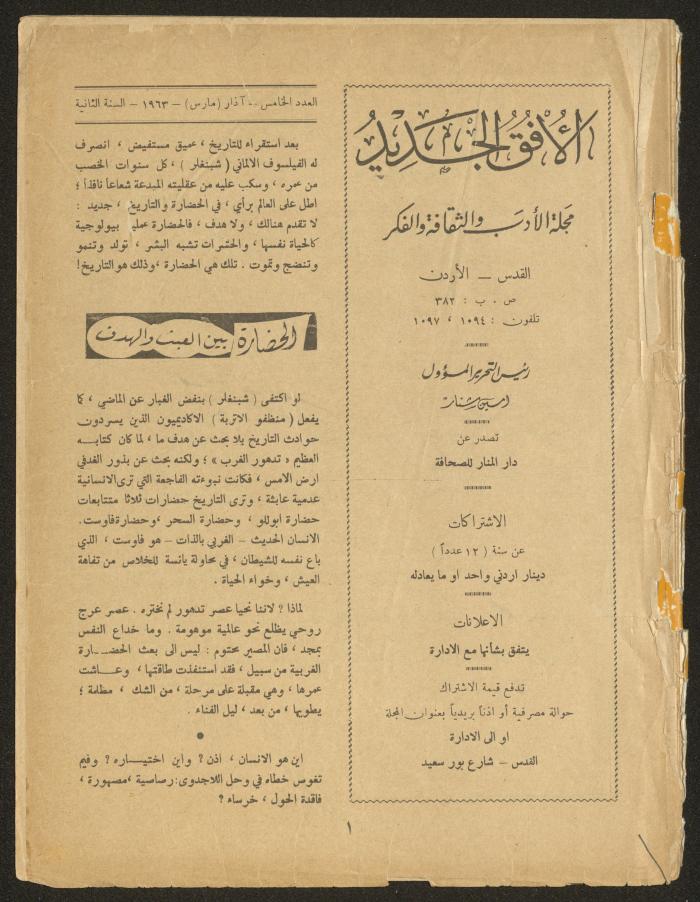 الأفق الجديد
مجلة الأدب والثقافة والفكر
القدس — الأردن
ص . ب : ٣٨٢
تلفون : ١٠٩٤ ، ١٠٩٧
رئيس التحرير المسؤول
امين شنار
تصدر عن
دار المنار للصحافة
الاشتراكات
عن سنة ( ١٢ عدداً )
دينار اردني واحد او ما يعادله
الاعلانات
يتفق بشأنها مع الادارة
تدفع قيمة الاشتراك
حوالة مصرفية أو اذناً بريدياً بعنوان المجلة
او الى الادارة
القدس — شارع بور سعيد
العدد الخامس - آذار (مارس) — ١٩٦٣ — السنة الثانية
بعد استقراء للتاريخ ، عميق مستفيض ، انصرف
له الفيلسوف الالماني ( شبنغلر ) ، كل سنوات الخصب
من عمره ، وسكب عليه من عقليته المبدعة شعاعاً نافذاً ؛
اطل على العالم برأي ، في الحضارة والتاريخ ، جديد :
لا تقدم هنالك ، ولا هدف ، فالحضارة عملية بيولوجية
كالحياة نفسها ، والحشرات تشبه البشر ، تولد وتنمو
وتنضج وتموت . تلك هي الحضارة ، وذلك هو التاريخ!
الحضارة بين العبث والهدف
لو اكتفى ( شبنغلر ) بنفض الغبار عن الماضي ، كما
يفعل ( منظفو الاتربة ) الاكاديميون الذين يسردون
حوادث التاريخ بلا بحث عن هدف ما ، لما كان كتابــه
العظيم « تدهور الغرب » ؛ ولكنه بحث عن بذور الغدفي
ارض الامس ، فكانت نبوءته الفاجعة التي ترى الانسانية
عدمية عابثة ، وترى التاريخ حضارات ثلاثا متتابعات
حضارة ابوللو ، وحضارة السحر ، وحضارة فاوست.
الانسان الحديث — الغربي بالذات — هو فاوست ، الذي
باع نفسه للشيطان ، في محاولة يائسة للخلاص من تفاهة
العيش ، وخواء الحياة .
لماذا ? لاننا نحيا عصر تدهور لم نختره . عصر عرج
روحي يظلع نحو عالمية موهومة . وما خداع النفس
بمجد ، فان المصير محتوم : ليس الى بعث الحضــارة
الغربية من سبيل ، فقد استنفذت طاقتها ، وعــاشت
عمرها ، وهي مقبلة على مرحلة ، من الشك ، مظلمة ؛
يطويها ، من بعد ، ليل الفناء .
●
اين هو الانسان ، اذن ? واين اختيــاره ? وفيم
تغوص خطاه في وحل اللاجدوى: رصاصية ، مصهورة ،
فاقدة الحول ، خرساء ?
١